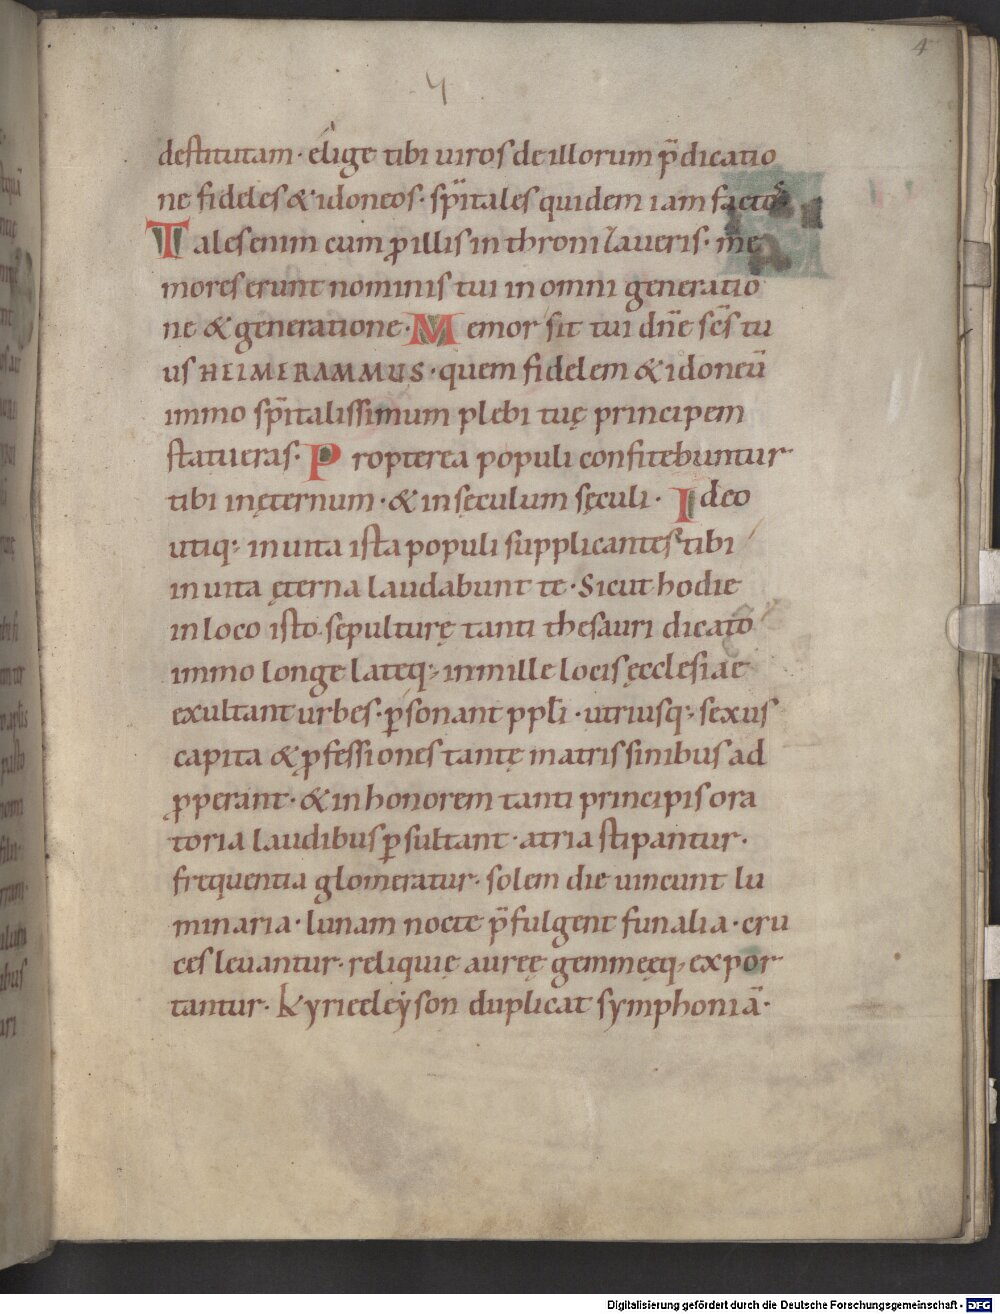 4
4
destitutam· elige tibi uiros de illorum p̄dicatio
ne fideles & idoneos· sp̄itales quidem iam factos·
Tales enim cum ꝓ illis in throni laueris· me
mores erunt nominis tui in omni generatio
ne & generatione· Memor sit tui dn̄e sc̄s tu
us HEIMERAMMUS· quem fidelem & idoneū
immo sp̄italissimum plebi tuę principem
statueras· Propterea populi confitebuntur
tibi inęternum· & insęculum sęculi· Ideo
utiq; inuita ista populi supplicantes tibi
inuita ęterna laudabunt te· Sicut hodie
inloco isto sepulturę tanti thesauri dicato
immo longe lateq; inmille locis ęcclesiae
exultant urbes· ꝑsonant ppl̄i· utriusq; sexus
capita & ꝓfessiones tantę matris sinibus ad
ꝓperant· & inhonorem tanti principis ora
toria laudibus ꝑsultant· atria stipantur·
frequentia glomeratur· solem die uincunt lu
minaria· lunam nocte p̄fulgent funalia· cru
ces leuantur· reliquię aureę gemmeęq; expor
tantur· kyrieeleyson duplicat symphoniā·
Digitalisierung gefördert durch die Deutsche Forschungsgemeinschaft · DFG